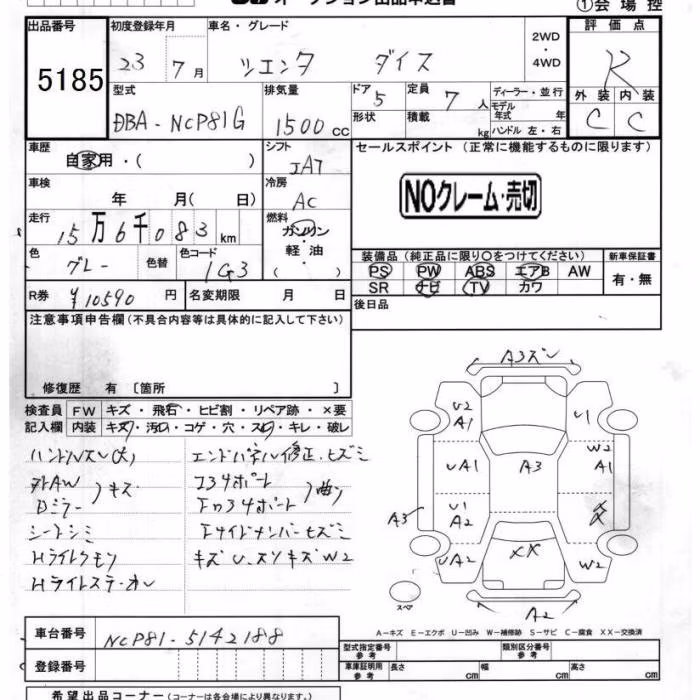 オークション出品申込書
①会場控
出品番号
5185
初度登録年月
23 7月
車名・グレード
シエンタ ダイス
2WD・4WD
評価点
R
外装 内装
C C
型式
DBA-NCP81G
排気量
1500cc
ドア 5
形状
定員 7人
積載 kg
ディーラー・並行
モデル年式 年
ハンドル 左・右
車歴
自家用・( )
シフト
IAT
セールスポイント (正常に機能するものに限ります)
NOクレーム・売切
車検
年 月( 日)
冷房
AC
走行
15万6千083km
燃料
ガソリン・軽油・( )
色
グレー
色替
色コード
1G3
装備品 (純正品に限り○をつけてください)
PS PW ABS エアB AW
SR ナビ TV カワ
新車保証書
有・無
R券 ¥10590円
名変期限 月 日
後日品
注意事項申告欄(不具合内容等は具体的に記入して下さい)
修復歴 有 〔箇所 〕
検査員記入欄
FW キズ・飛石・ヒビ割・リペア跡・×要
内装 キズ・汚れ・コゲ・穴・スレ・キレ・破レ
ハンドルスレ(大)
シートシミ
Hライトクモリ
エンドパネル修正、ヒズミ
コ34ポート
キズU、スソキズW2
A3ズレ
U2 A1
U1
UA1
A3
W2 A1
U1 A2
A3
X X
UA2
XX
W2
スペア
A2
A-キズ E-エクボ U-凹み W-補修跡 S-サビ C-腐食 XX-交換済
車台番号 NCP81-5142188
登録番号
型式指定番号 参考
類別区分番号 参考
車庫証明用 参考
長さ cm 幅 cm 高さ cm
希望出品コーナー(コーナーは各会場により異なります。)